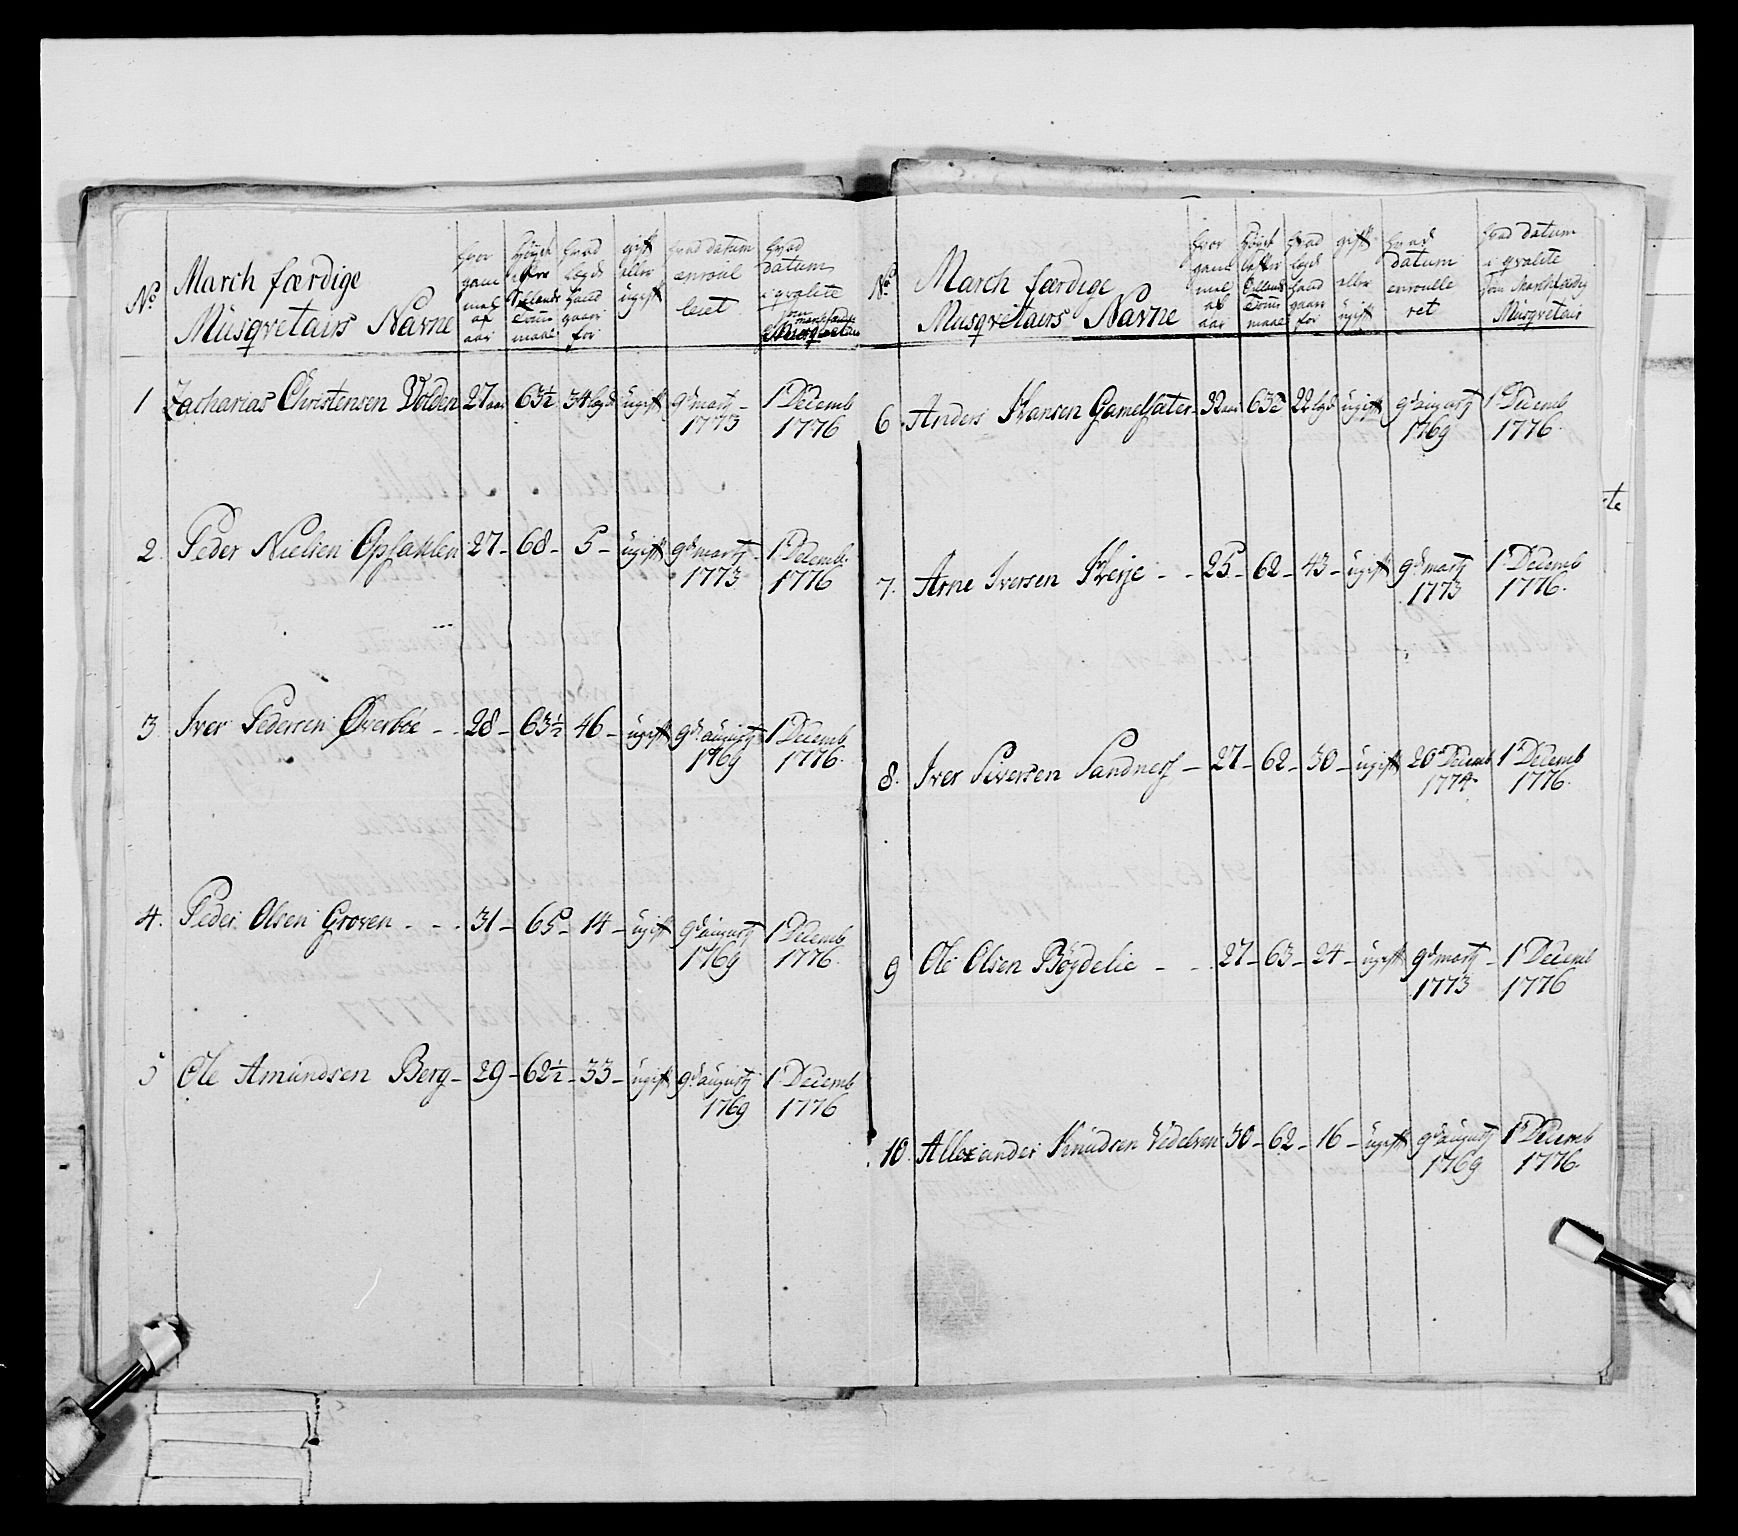 No
March færdige
Musqvetairs Navne
hvor gam mel af aar
Høyde efter Sellands Tome maal
hvad legd hand gaar for
gift eller ugift
hvad datum enroul leret
hvad datum i qvalite
1 Zacharias Christensen Volden 27 aar 63½ 34 legd ugift 9de marty 1773 1 Decemb 1776
2. Peder Nielsen Opsahlen 27 - 68 - 5 - ugift 9de marty 1773 1 Decemb 1776
3 Iver Pedersen Øverböe - - 28 - 63½ 46 - ugift 9de augusty 1769 1 Decemb 1776.
4. Peder Olsen Groven - - - 31 - 65 - 14 - ugift 9de augusty 1769 1 Decemb 1776.
5 Ole Amundsen Berg - 29 - 62½ - 33 - ugift 9de augusty 1769 1 Decemb 1776
No
March færdige
Musqvetairs Navne
hvor gam mel af aar
Høyde efter Sellands Tome maal
hvad legd hand gaar for
gift eller ugift
hvad datum enroulle ret
hvad datum i qvalite som Marchfærdig Musqvetair
6 Anders Hansen Gamelsæter 32 aar 63½ 22 legd ugift 9de augusty 1769 1 Decemb 1776.
7. Arne Iversen - - 25 - 62 - 43 - ugift 9de marty 1773 1 Decemb 1776.
8. Iver Siversen Sandnes - 27 - 62 - 30 - ugift 20 Decemb 1774. 1 Decemb 1776.
9 Ole Olsen Bøgdelie - - 27 - 63 - 24 - ugift 9de marty 1773 - 1 Decemb 1776
10. Allexander Knudsen 30 - 62 - 16 - ugift 9de augusty 1769 1 Decemb 1776.
te